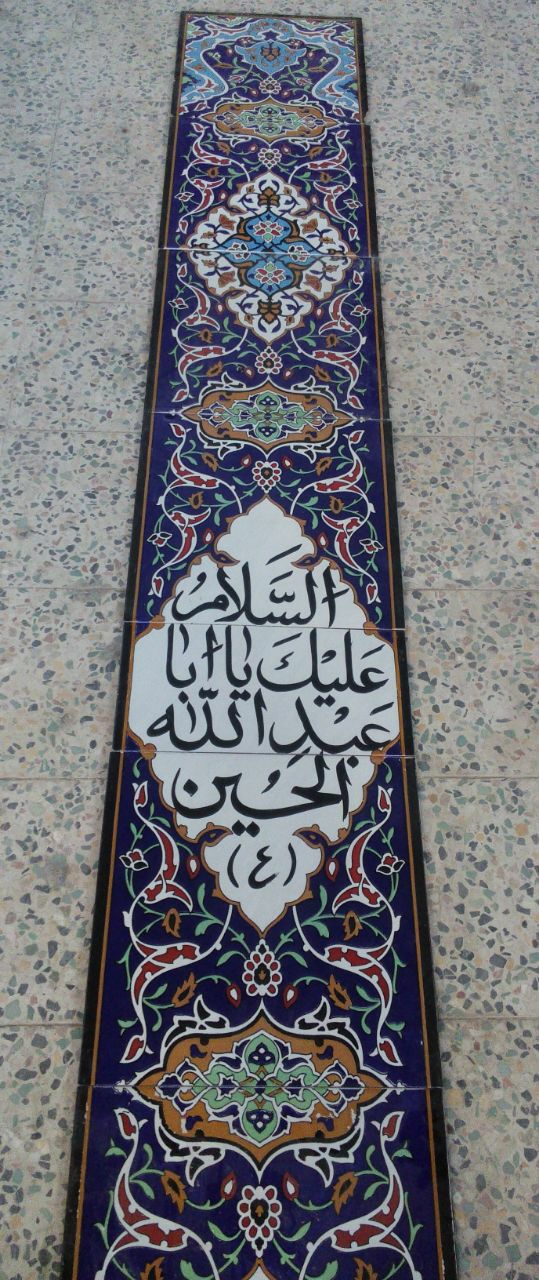 السَّلامُ
عَليْكَ يا ابا
عَبْدِ اللّه
الحُسين
(ع)